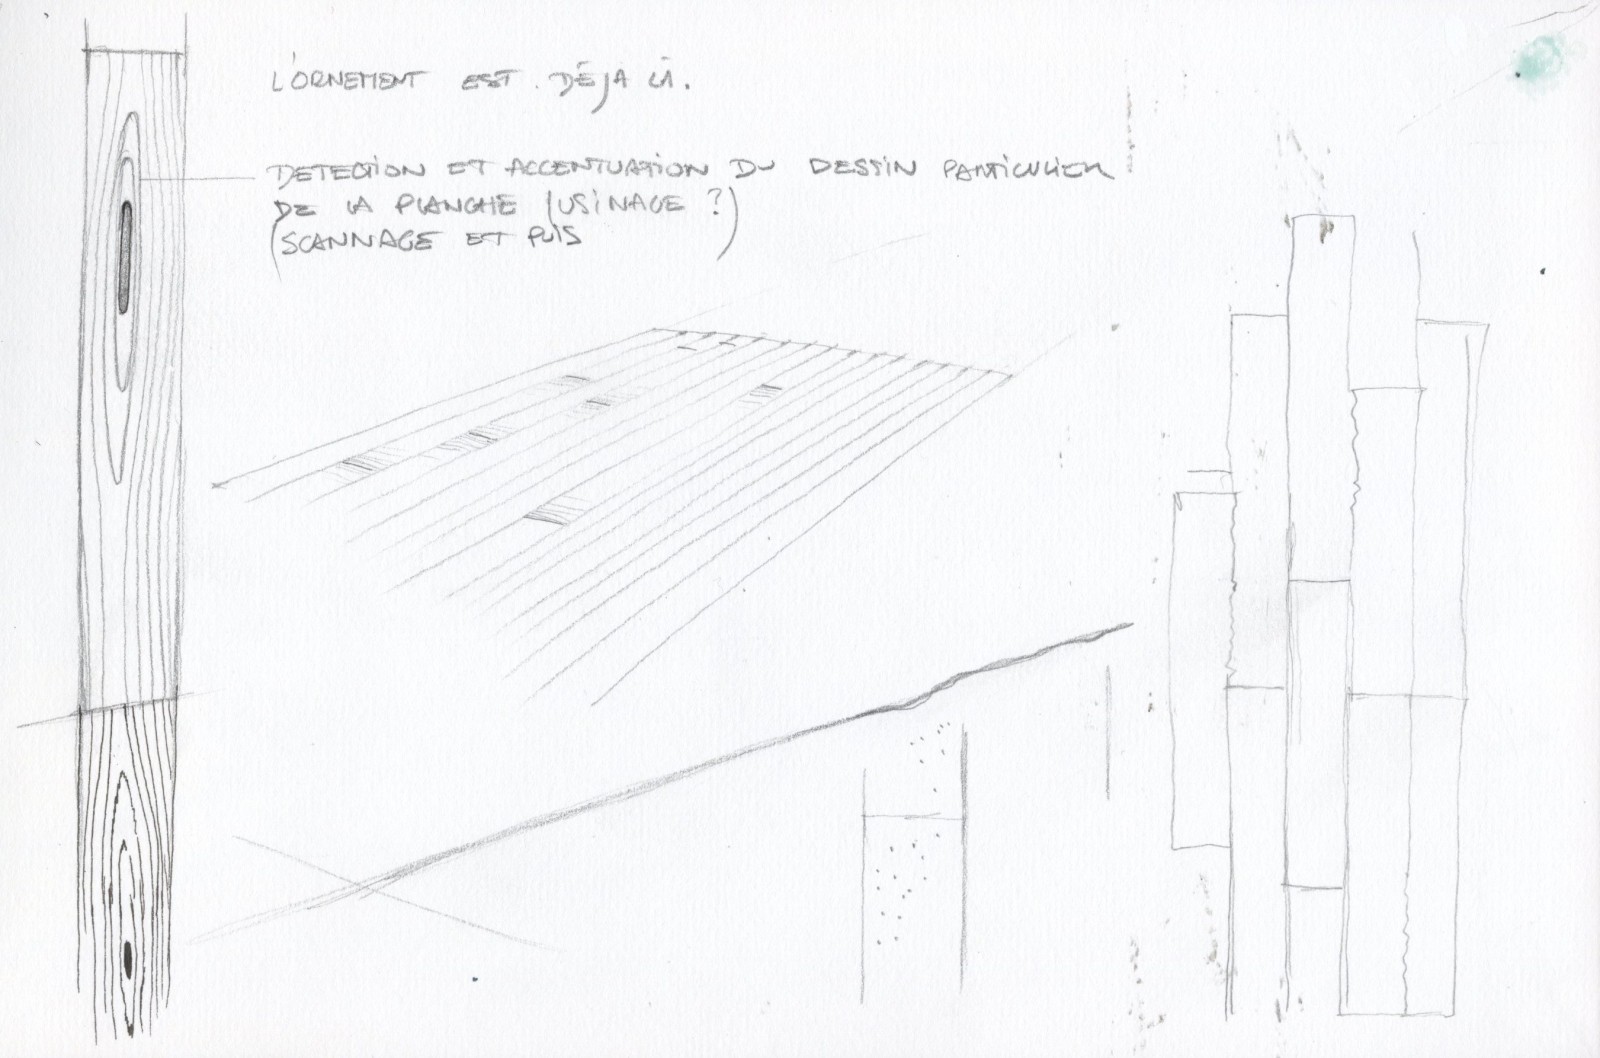 L'ORNEMENT EST DÉJÀ LÀ.
DETECTION ET ACCENTUATION DU DESSIN PARTICULIER
DE LA PLANCHE (USINAGE ?)
(SCANNAGE ET PUIS )